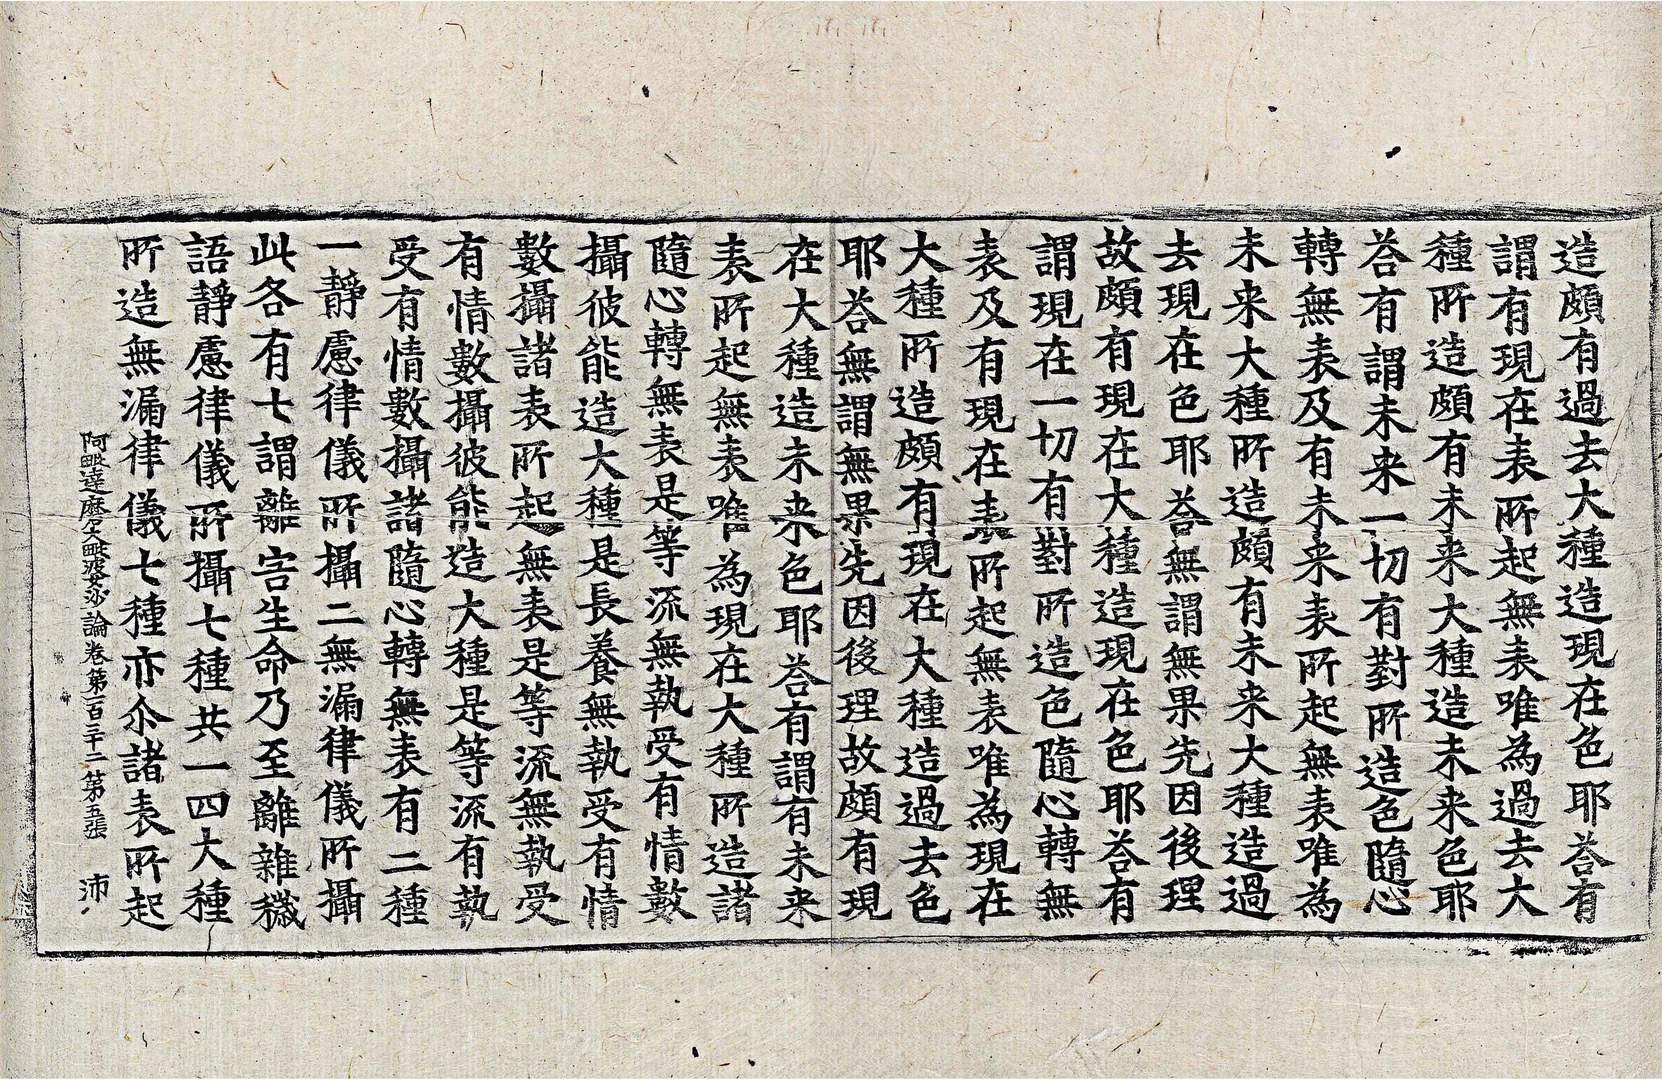 造頗有過去大種造現在色耶荅有
謂有現在表所起無表唯為過去大
種所造頗有未来大種造未来色耶
荅有謂未来一切有對所造色隨心
轉無表及有未来表所起無表唯為
未来大種所造頗有未来大種造過
去現在色耶荅無謂無果先因後理
故頗有現在大種造現在色耶荅有
謂現在一切有對所造色隨心轉無
表及有現在表所起無表唯為現在
大種所造頗有現在大種造過去色
耶荅無謂無果先因後理故頗有現
在大種造未来色耶荅有謂有未来
表所起無表唯為現在大種所造諸
隨心轉無表是等流無執受有情數
攝彼能造大種是長養無執受有情
數攝諸表所起無表是等流無執受
有情數攝彼能造大種是等流有執
受有情數攝諸隨心轉無表有二種
一靜慮律儀所攝二無漏律儀所攝
此各有七謂離害生命乃至離雜穢
語靜慮律儀所攝七種共一四大種
所造無漏律儀七種亦尒諸表所起
阿毗達磨大毗婆沙論卷第一百三十二 第五張 沛